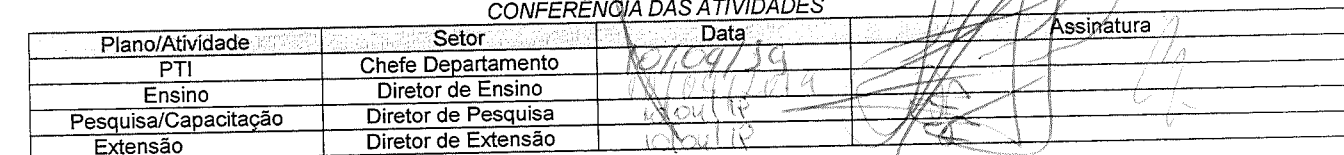 CONFERÊNCIA DAS ATIVIDADES
Plano/Atividade Setor Data Assinatura
PTI Chefe Departamento
Ensino Diretor de Ensino
Pesquisa/Capacitação Diretor de Pesquisa
Extensão Diretor de Extensão